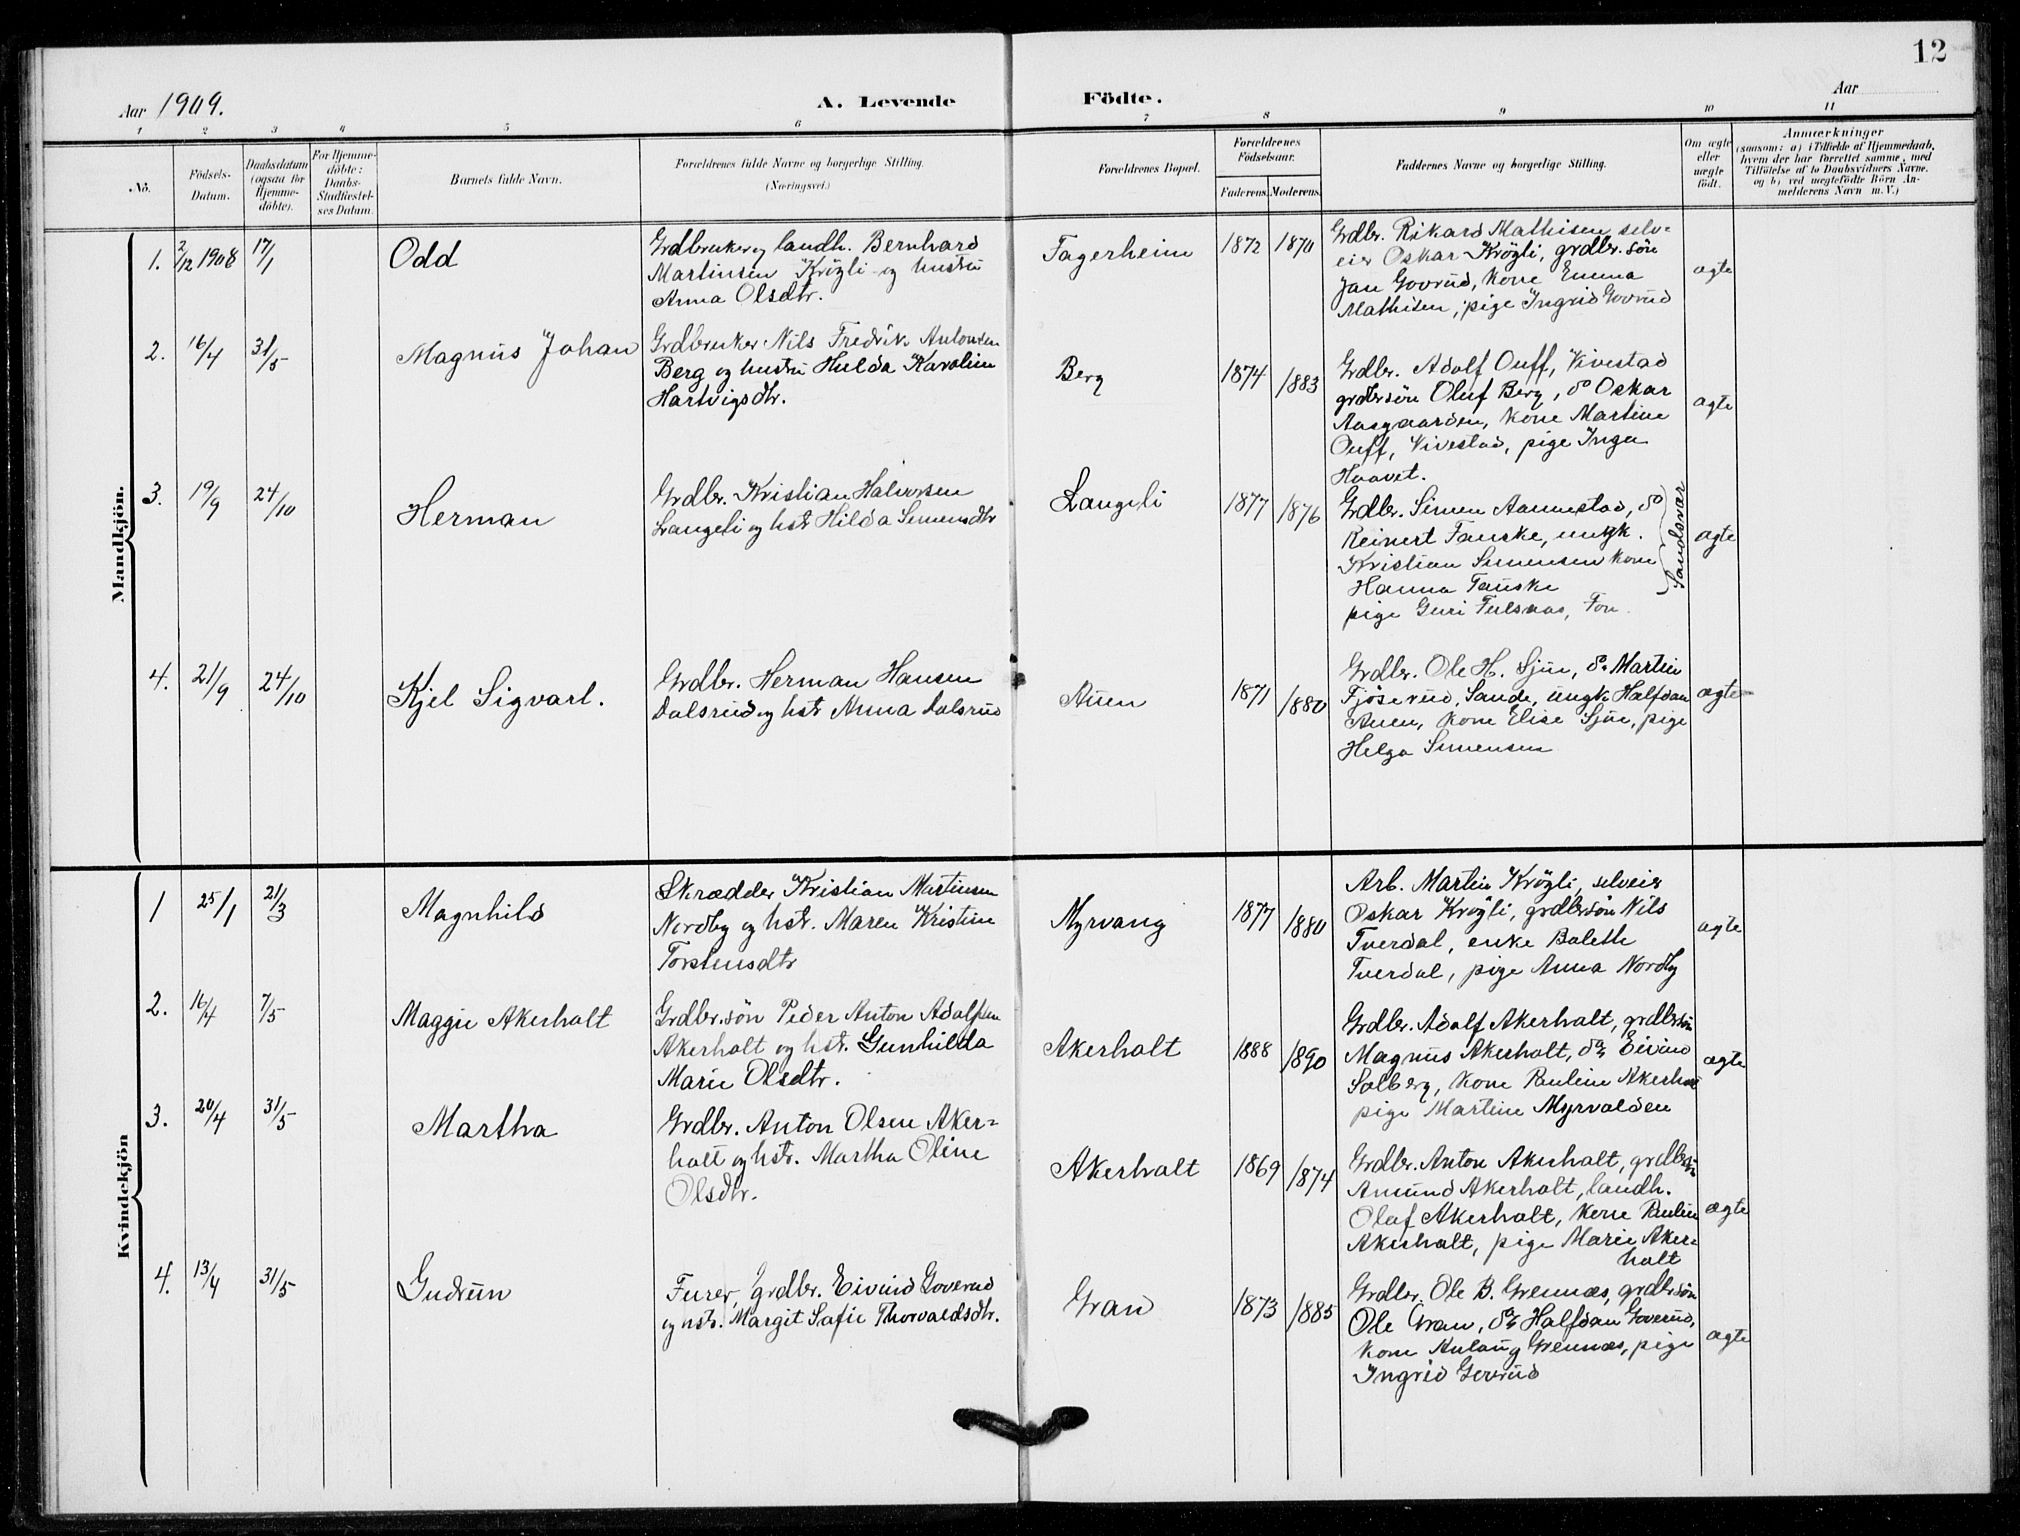 12
Aar 1909.
A. Levende Födte.
Aar
1 2 3 4 5 6 7 8 9 10 11
No.
Födsels-
Datum.
Daabsdatum
(ogsaa for
Hjemme-
döbte).
For Hjemme-
döbte:
Daabs-
Stadfæstel-
ses Datum.
Barnets fulde Navn.
Forældrenes fulde Navne og borgerlige Stilling.
(Næringsvei.)
Forældrenes Bopæl.
Forældrenes
Födselsaar.
Faderens. Moderens.
Faddernes Navne og borgerlige Stilling.
Om ægte
eller
uægte
födt.
Anmærkninger
(saasom: a) i Tilfælde af Hjemmedaab,
hvem der har forrettet samme, med
Tilföielse af to Daabsvidners Navne.
og b) ved uægtefödte Börn An-
melderens Navn m. V.)
Mandkjön.
1. 2/12 1908 17/1 Odd
Grdbruker og landh. Bernhard
Martinsen Krögli og hustru
Anna Olsdtr.
Fagerheim 1872 1870
Grdbr. Rikard Mathisen, selv-
eier Oskar Krögli, grdbr. sön
Jan Govrud, kone Emma
Mathisen, pige Ingrid Govrud
ægte
2. 16/4 31/5 Magnus Johan
Grdbruker Nils Fredrik Antonsen
Berg og hustru Hulda Karoline
Hartvigsdtr.
Berg 1874 1883
Grdbr. Adolf Ouff, Vivestad
grdbrsön Oluf Berg, do Oskar
Aasgaarden, kone Martine
Ouff, Vivestad, pige Inga
Haavet.
ægte
3. 19/9 24/10 Herman
Grdbr. Kristian Halvorsen
Langeli og hstr Hilda Simensdtr
Langeli 1877 1876
Grdbr. Simen Aannestad, do
Reinert Fauske, ungk.
Kristian Simensen kone
Hanna Fauske
Sandsvær
pige Guri Fulsaas, Fon.
ægte
4. 21/9 24/10 Kjel Sigvarl.
Grdbr. Herman Hansen
Dalsrud og hstr Anna Dalsrud
Auen 1871 1880
Grdbr. Ole H. Sjue, do Martin
Fjöserud, Sande, ungk. Halfdan
Auen, kone Elise Sjue, pige
Helga Simensen
ægte
Kvindekjön
1 25/1 21/3 Magnhild
Skrædder Kristian Martinsen
Nordby og hst. Maren Kristine
Torstensdtr
Myrvang 1877 1880
Arb. Martin Krögli, selveier
Oskar Krögli, grdbrsön Nils
Tverdal, enke Bolette
Tverdal, pige Anna Nordby
ægte
2. 16/4 7/5 Maggie Akerholt
Grdbr.sön Peder Anton Adolfsen
Akerholt og hst. Gunhilda
Marie Olsdtr.
Akerholt 1888 1890
Grdbr. Adolf Akerholt, grdbrsön
Magnus Akerholt, do Eivind
Solberg, kone Pauline Akerholt
pige Martine Myrvolden
ægte
3. 20/4 31/5 Martha
Grdbr. Anton Olsen Aker-
holt og hstr. Martha Oline
Olsdtr.
Akerholt 1869 1874
Grdbr. Anton Akerholt, grdbrsön
Amund Akerholt, landh.
Olaf Akerholt, kone Pauline
Akerholt, pige Marie Aker-
holt
ægte
4. 13/4 31/5 Gudrun
Furer, grdbr. Eivind Goverud
og hstr. Margit Sofie Thorvaldsdtr.
Gran 1873 1885
Grdbr. Ole B. Grennæs, grdbrsön
Ole Gran, do Halfdan Goverud,
kone Anlaug Grennæs, pige
Ingrid Goverud
ægte